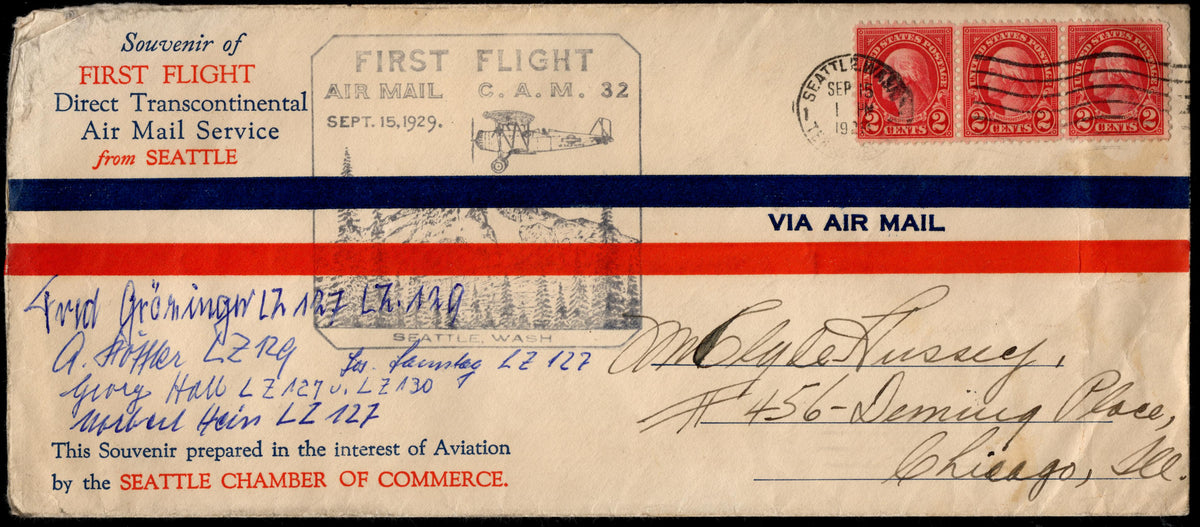 Souvenir of
FIRST FLIGHT
Direct Transcontinental
Air Mail Service
from SEATTLE
FIRST FLIGHT
AIR MAIL C. A. M. 32
SEPT. 15, 1929.
SEATTLE, WASH
SEATTLE, WASH
SEP 15
1
192
UNITED STATES POSTAGE
2 CENTS 2
UNITED STATES POSTAGE
2 CENTS 2
UNITED STATES POSTAGE
2 CENTS 2
VIA AIR MAIL
Grözinger LZ 127 LZ. 129
A. Stöffler LZ 129
Jos. Samstag LZ 127
Georg Hall LZ 127 u. LZ 130
Norbert Hein LZ 127
M Clyde Hussey,
# 456 - Deming Place,
Chicago, Ill.
This Souvenir prepared in the interest of Aviation
by the SEATTLE CHAMBER OF COMMERCE.